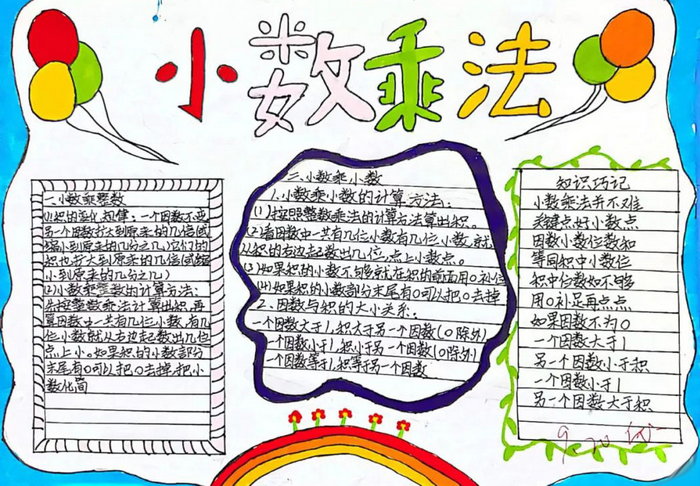 小数乘法
一、小数乘整数
(1)积的变化规律:一个因数不变
另一个因数扩大到原来的几倍(或
缩小到原来的几分之几)它们的
积也扩大到原来的几倍(或缩
小到原来的几分之几)
(2)小数乘整数的计算方法:
先按整数乘法计算出积,再
算因数中一共有几位小数,有几
位小数就从右边起数出几位
点上小。如果积的小数部分
末尾有0可以把0去掉把小
数化简
二、小数乘小数
1.小数乘小数的计算方法:
(1)按照整数乘法的计算方法算出积。
(2)看因数中一共有几位小数有几位小数,就
积的右边起数出几位,点上小数点。
(3)如果积的小数不够就在积的前面用0补位
(4)如果积的小数部分末尾有0可以把0去掉
2、因数与积的大小关系:
一个因数大于1,积大于另一个因数(0除外)
一个因数小于1,积小于另一个因数(0除外)
一个因数等于1,积等于另一个因数
知识巧记
小数乘法并不难
关键点好小数点
因数小数位数和
等同积中小数位
积中位数如不够
用0补足再点点
如果因数不为0
一个因数大于1
另一个因数小于积
一个因数小于1
另一个因数大于积